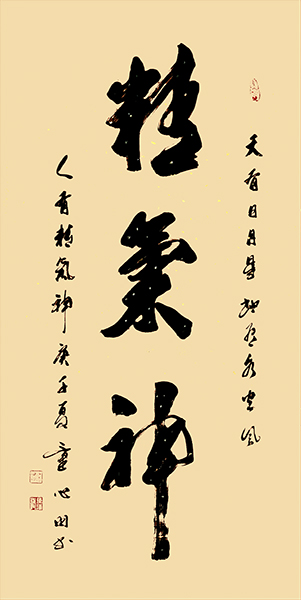 天有日月星地有水火风
精氣神
人有精氣神庚子夏童心田书